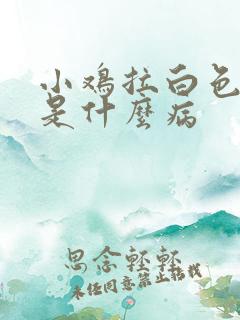 小鸡拉白色
是什麼病
思念轻轻
未经同意禁止搭载